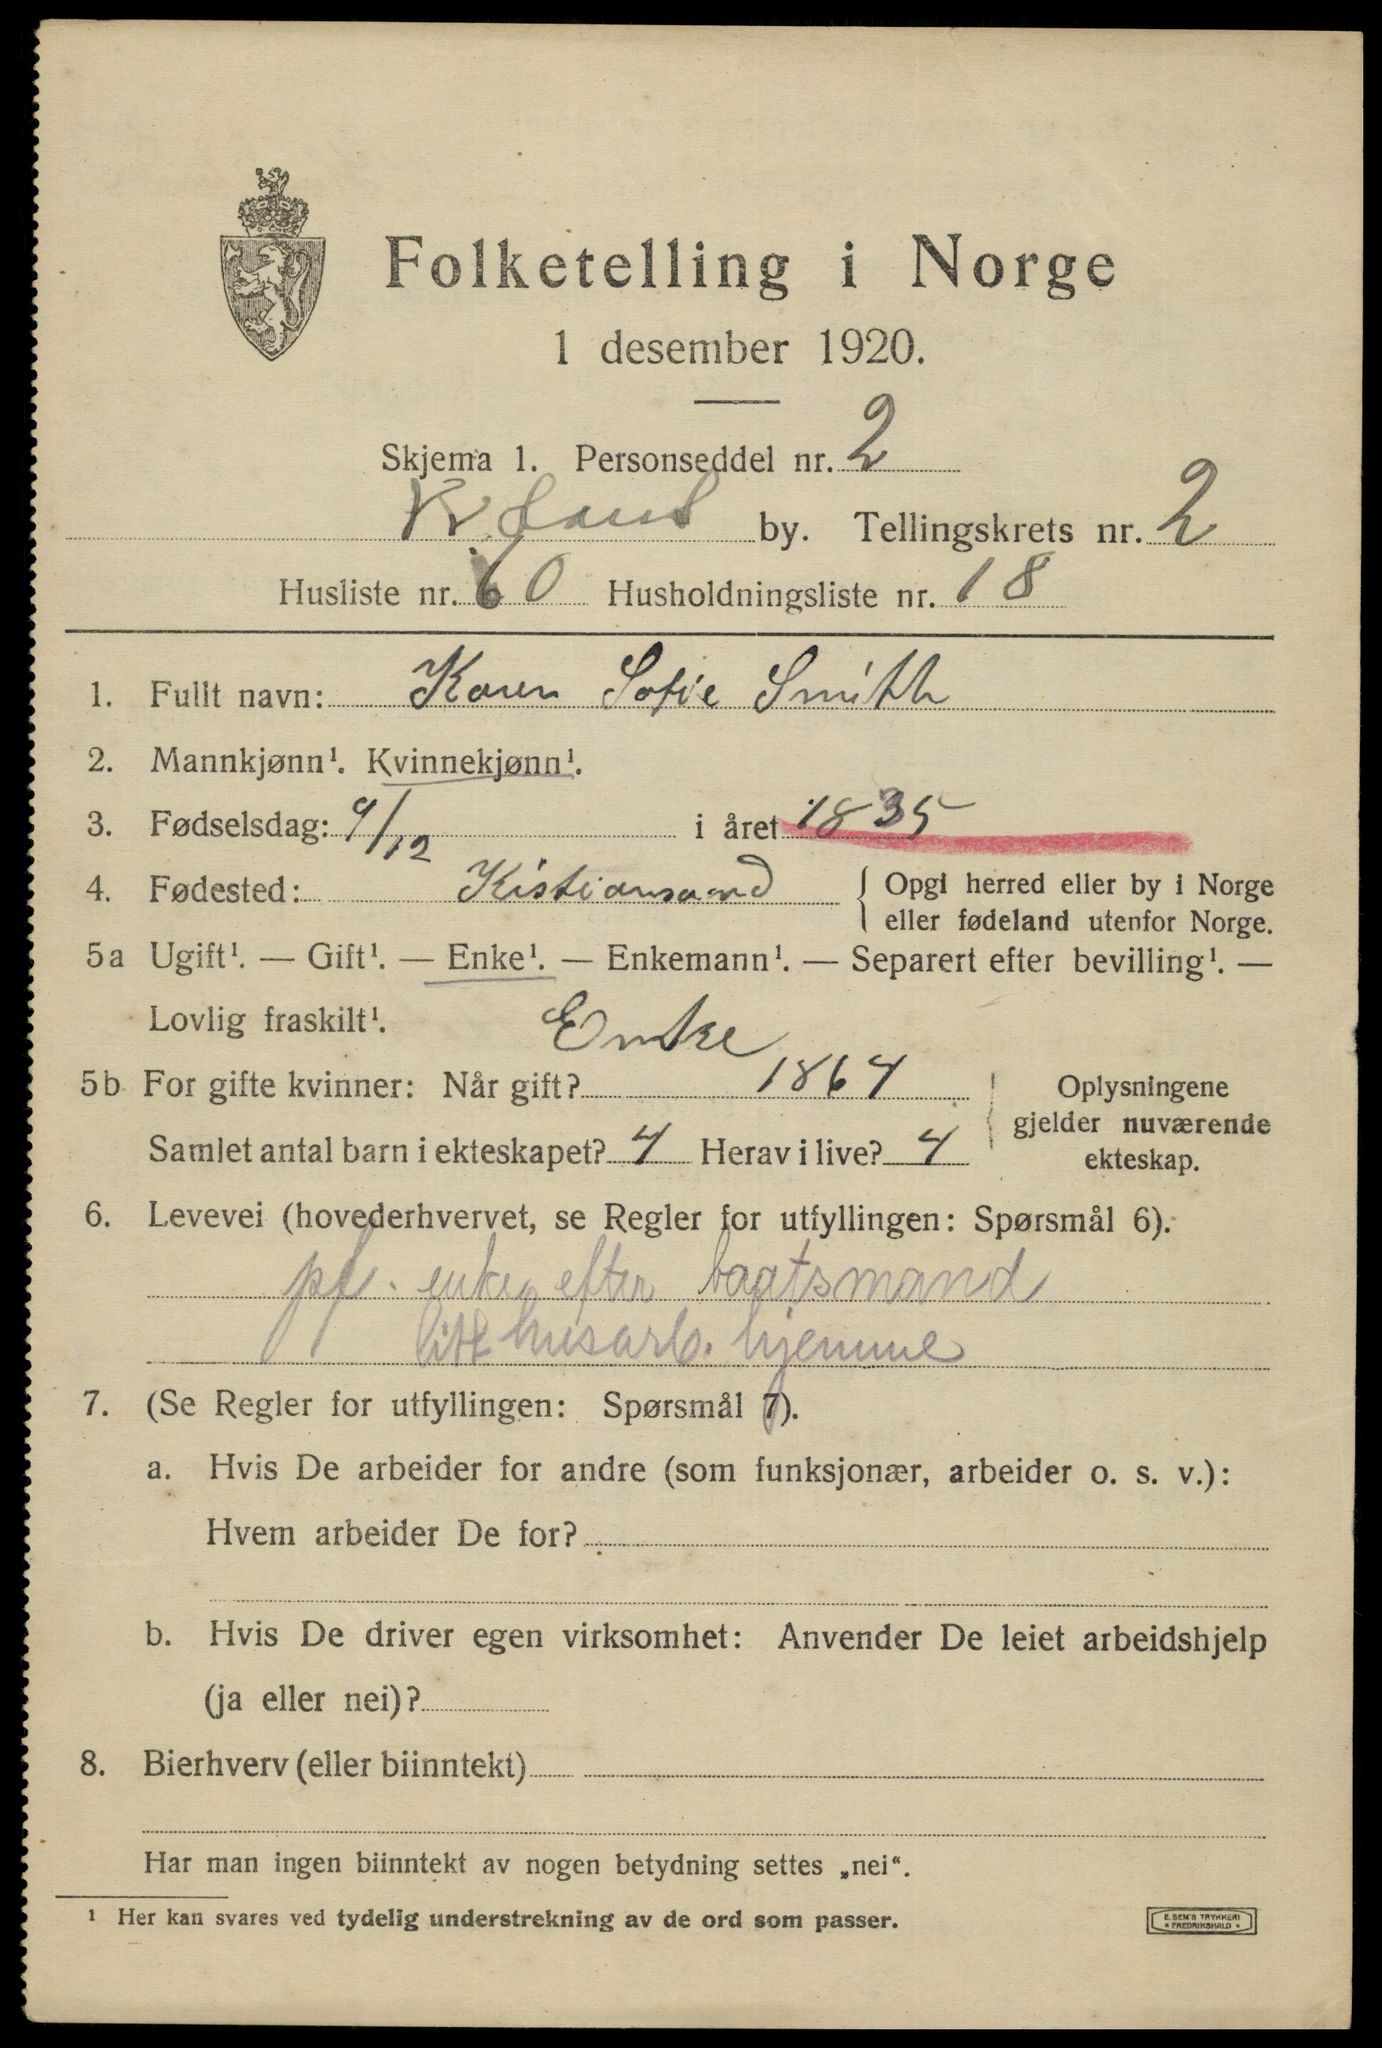 Folketelling i Norge
1 desember 1920.
Skjema 1. Personseddel nr. 2
Kr.sand by. Tellingskrets nr. 2
Husliste nr. 60 Husholdningsliste nr. 18
1. Fullt navn: Karen Sofie Smith
2. Mannkjønn¹. Kvinnekjønn¹.
3. Fødselsdag: 9/12 i året 1835
4. Fødested: Kistiansand { Opgi herred eller by i Norge
eller fødeland utenfor Norge.
5a Ugift¹. — Gift¹. — Enke¹. — Enkemann¹. — Separert efter bevilling¹. —
Lovlig fraskilt¹. Enke
5b For gifte kvinner: Når gift? 1864 Oplysningene
gjelder nuværende
Samlet antal barn i ekteskapet? 4 Herav i live? 4 ekteskap.
6. Levevei (hovederhvervet, se Regler for utfyllingen: Spørsmål 6).
pf. enke efter baatsmand
litt husarb. hjemme
7. (Se Regler for utfyllingen: Spørsmål 7).
a. Hvis De arbeider for andre (som funksjonær, arbeider o. s. v.):
Hvem arbeider De for?
b. Hvis De driver egen virksomhet: Anvender De leiet arbeidshjelp
(ja eller nei)?
8. Bierhverv (eller biinntekt)
Har man ingen biinntekt av nogen betydning settes „nei“.
¹ Her kan svares ved tydelig understrekning av de ord som passer.
E. SEM'S TRYKKERI
• FREDRIKSHALD •